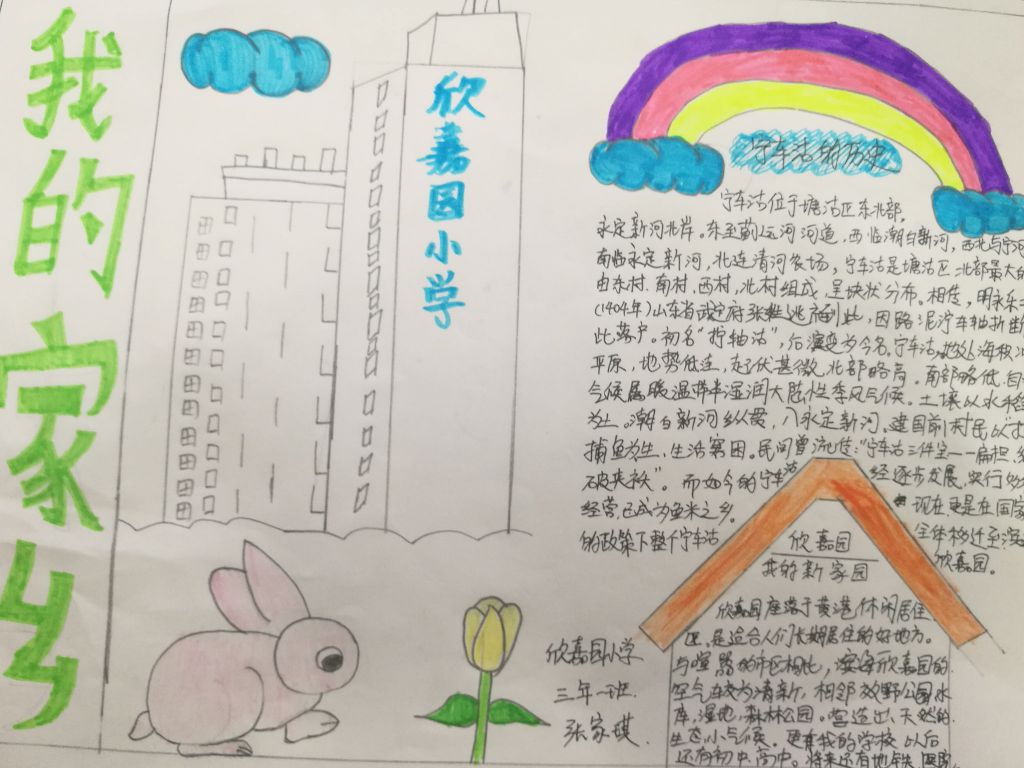 我的家乡
欣嘉园小学
宁车沽的历史
宁车沽位于塘沽区东北部。
永定新河北岸。东至蓟运河河道，西临潮白新河，西北与宁河
南临永定新河，北连清河农场，宁车沽是塘沽区北部最大的
由东村、南村、西村、北村组成，呈块状分布。相传，明永乐
(1404年)山东省 府张 逃 到此，因路泥泞车轴折断
此落户。初名"拧轴沽"，后演变为今名。宁车沽地处海积冲
平原，地势低洼，起伏甚微，北部略高。南部略低。
气候属暖温带半湿润大陆性季风气候。土壤以水稻
为主。潮白新河纵贯，入永定新河。建国前村民以
捕鱼为生，生活穷困。民间曾流传："宁车沽三件宝——扁担
破夹袄"。而如今的宁车沽
经逐步发展。实行
经营已成为鱼米之乡。
现在更是在国家
的政策下整个宁车沽
全体村迁至滨
欣嘉园。
欣嘉园
我的新家园
欣嘉园座落于黄港休闲居住
区，是适合人们长期居住的好地方。
与喧嚣的市区相比，滨海欣嘉园的
空气较为清新，相邻 野公园水
库，湿地，森林公园。营造出天然的
生态小气候。更有我的学校 以后
还有初中，高中。将来还有地铁 医院
欣嘉园小学
三年一班
张家琪